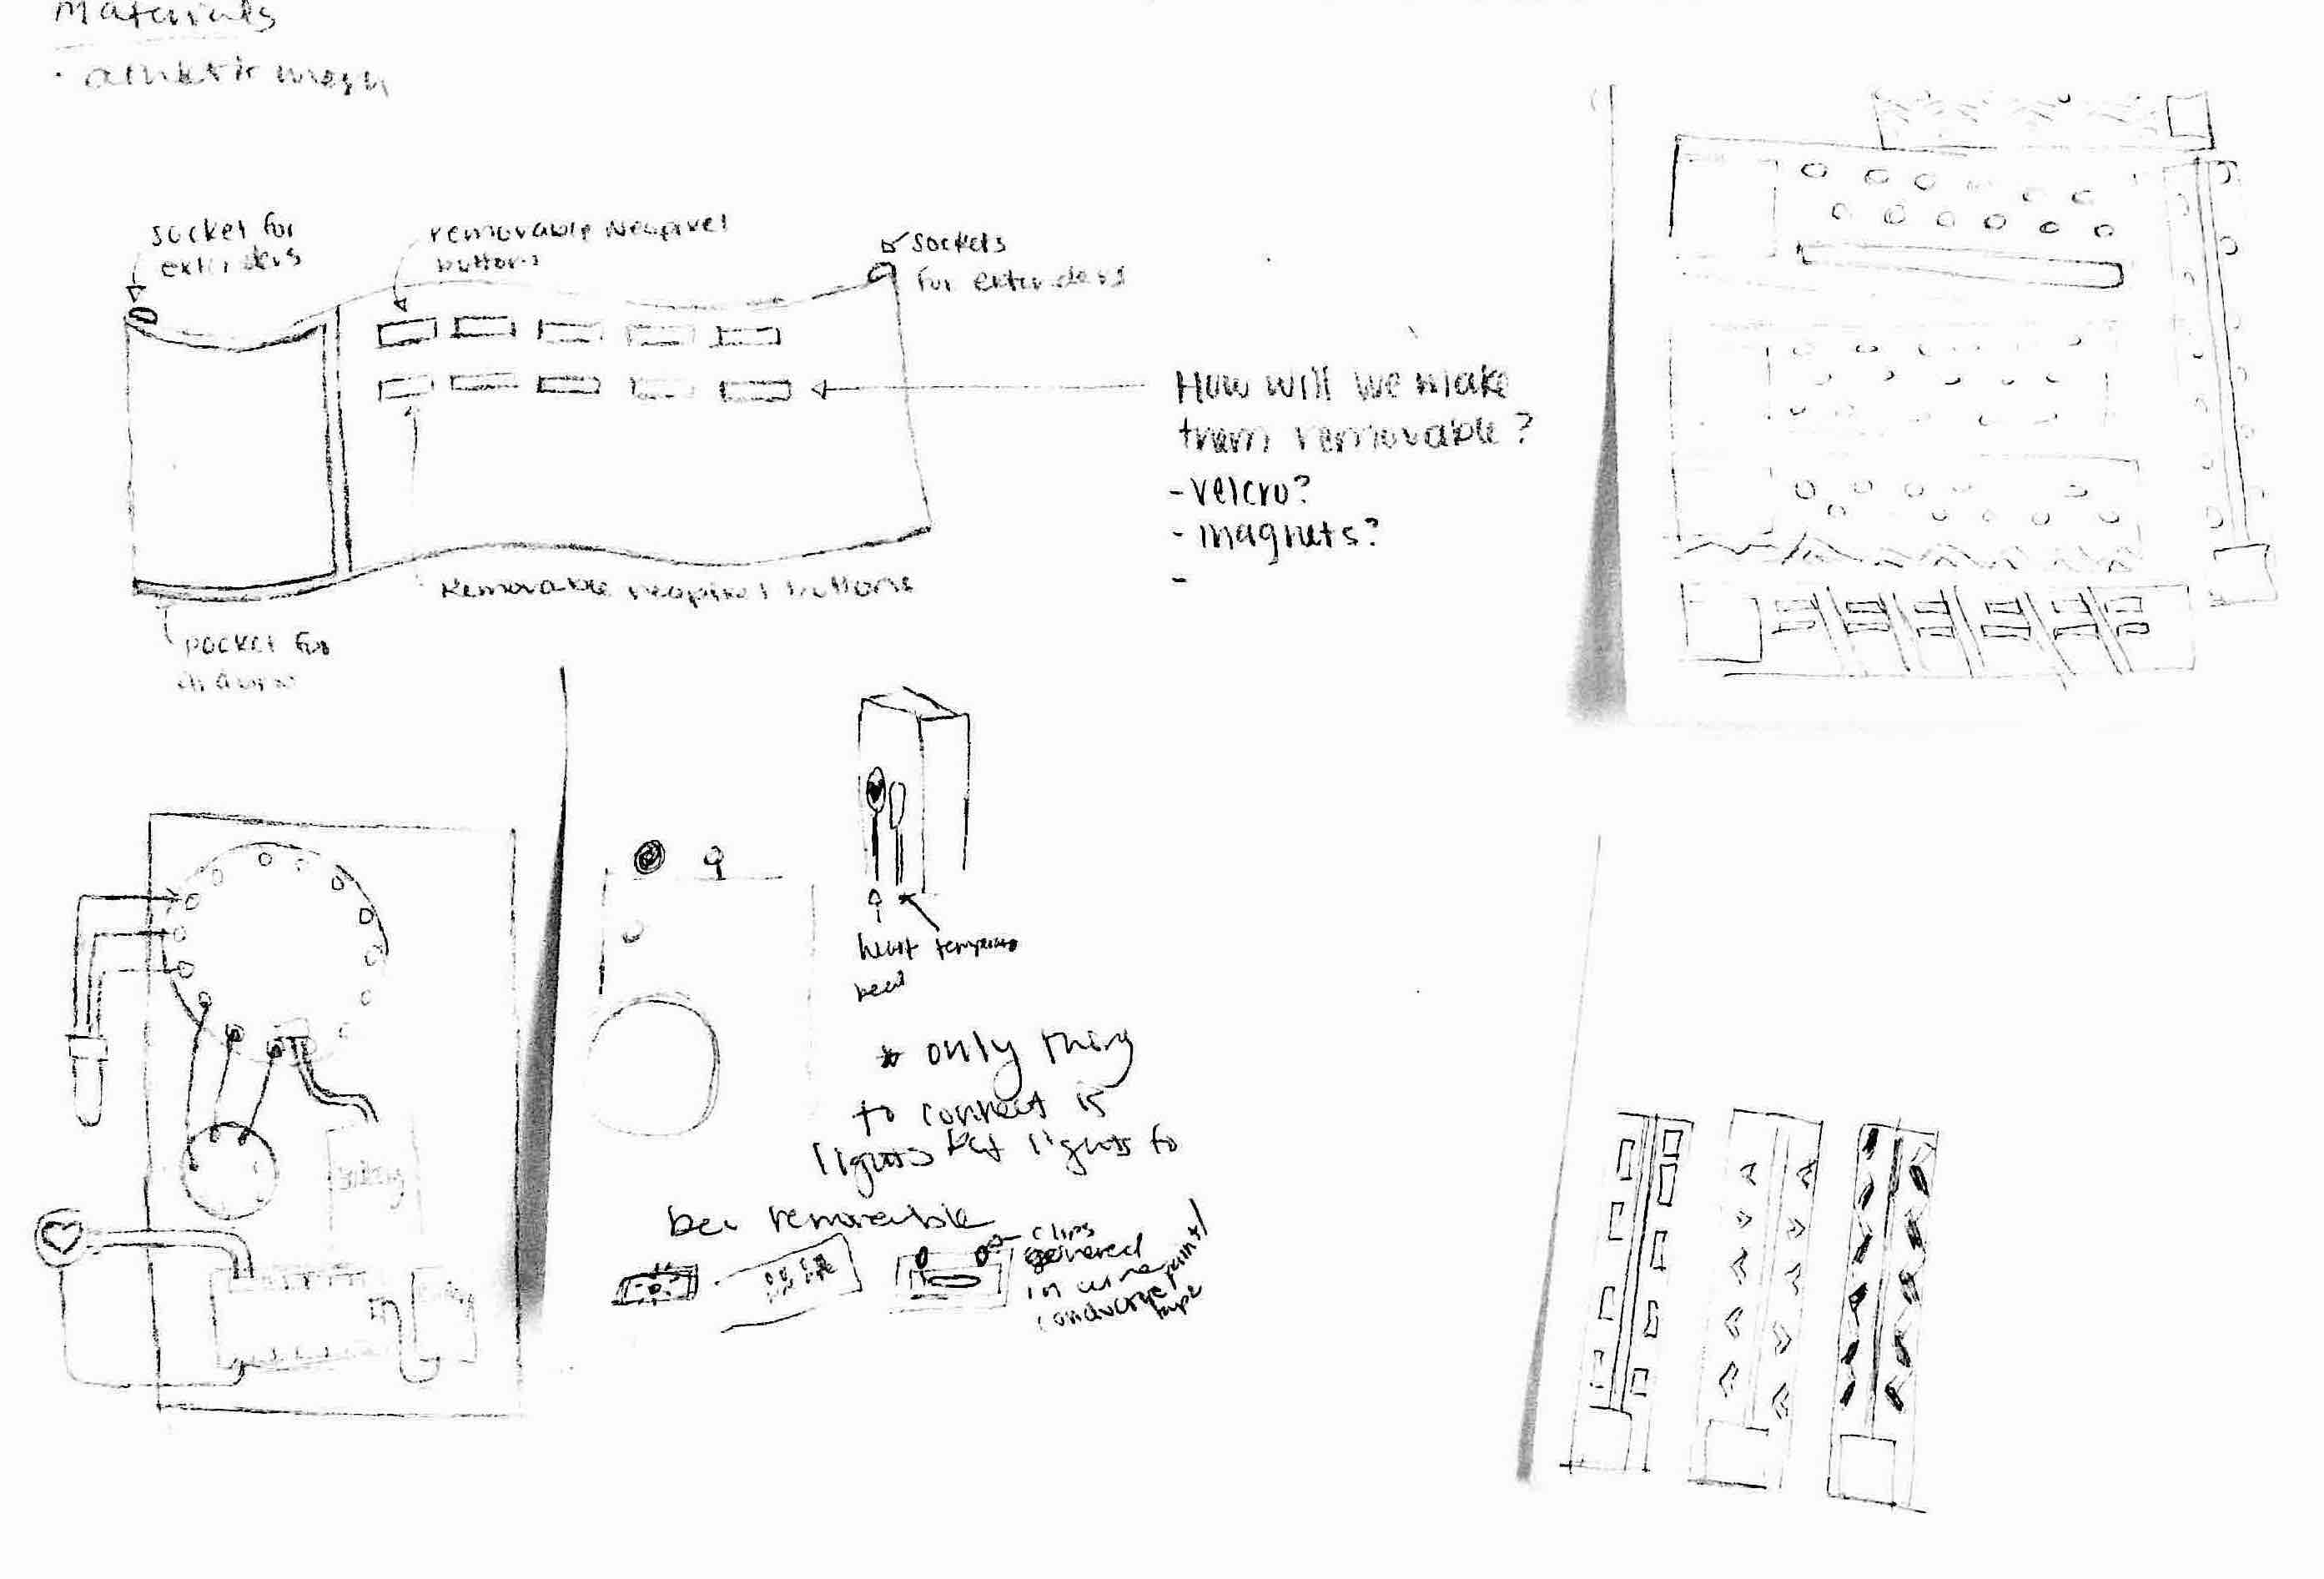 Materials
· athletic mesh
socket for
extenders
removable Neopixel
buttons
sockets
for extenders
How will we make
them removable?
- velcro?
- magnets?
-
Removable neopixel buttons
pocket for
heart temperature
beat
* only thing
to connect is
lights but lights to
be removable
clips
covered
in
conductive
tape